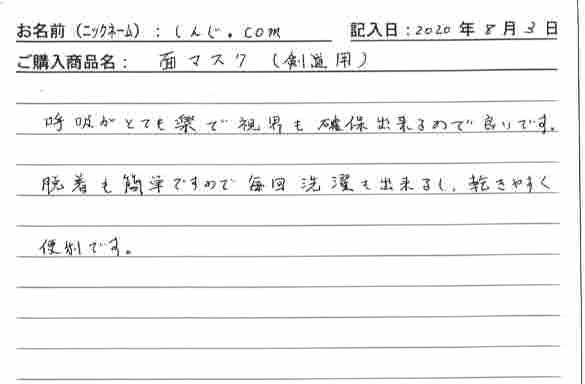 お名前(ニックネーム): しんじ.com 記入日:2020年8月3日
ご購入商品名: 面マスク(剣道用)
呼吸がとても楽で視界も確保出来るので良いです。
脱着も簡単ですので毎回洗濯も出来るし、乾きやすく
便利です。